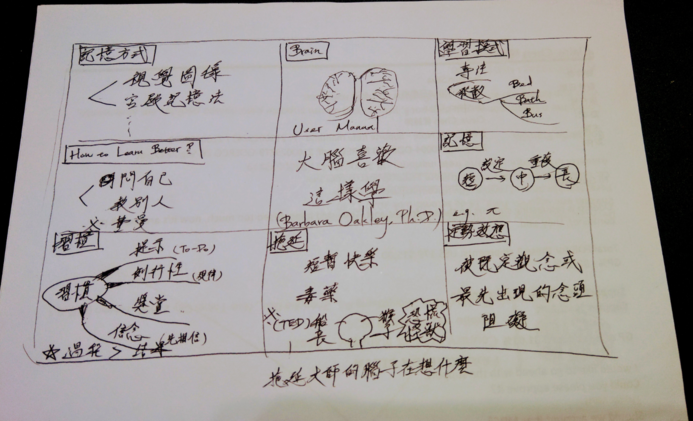 記憶方式
視覺圖像
宮殿記憶法
Brain
User Manual
學習模式
專注
發散
Bed
Bath
Bus
How to Learn Better?
問自己
教別人
大腦喜歡
這樣學
(Barbara Oakley, Ph.D)
記憶
短 → 中 → 長
e.g. π
習慣
習慣
提示 (To-Do)
例行性
獎賞
信念 (先相信)
☆ 過程 > 結果
拖延
短暫快樂
毒藥
(TED)
恐慌
怪獸
定勢效應
被既定觀念或
最先出現的念頭
阻礙
拖延大師的腦子在想什麼